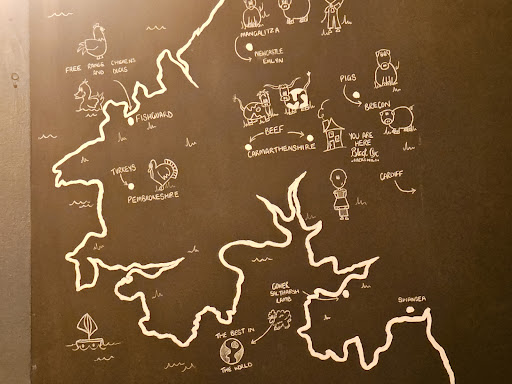 MANGALITZA
NEWCASTLE
EMLYN
FREE RANGE CHICKENS
AND DUCKS
PIGS
BRECON
FISHGUARD
BEEF
CARMARTHENSHIRE
YOU ARE
HERE
TURKEYS
PEMBROKESHIRE
CARDIFF
GOWER
SALTMARSH
LAMB
SWANSEA
THE BEST IN
THE WORLD